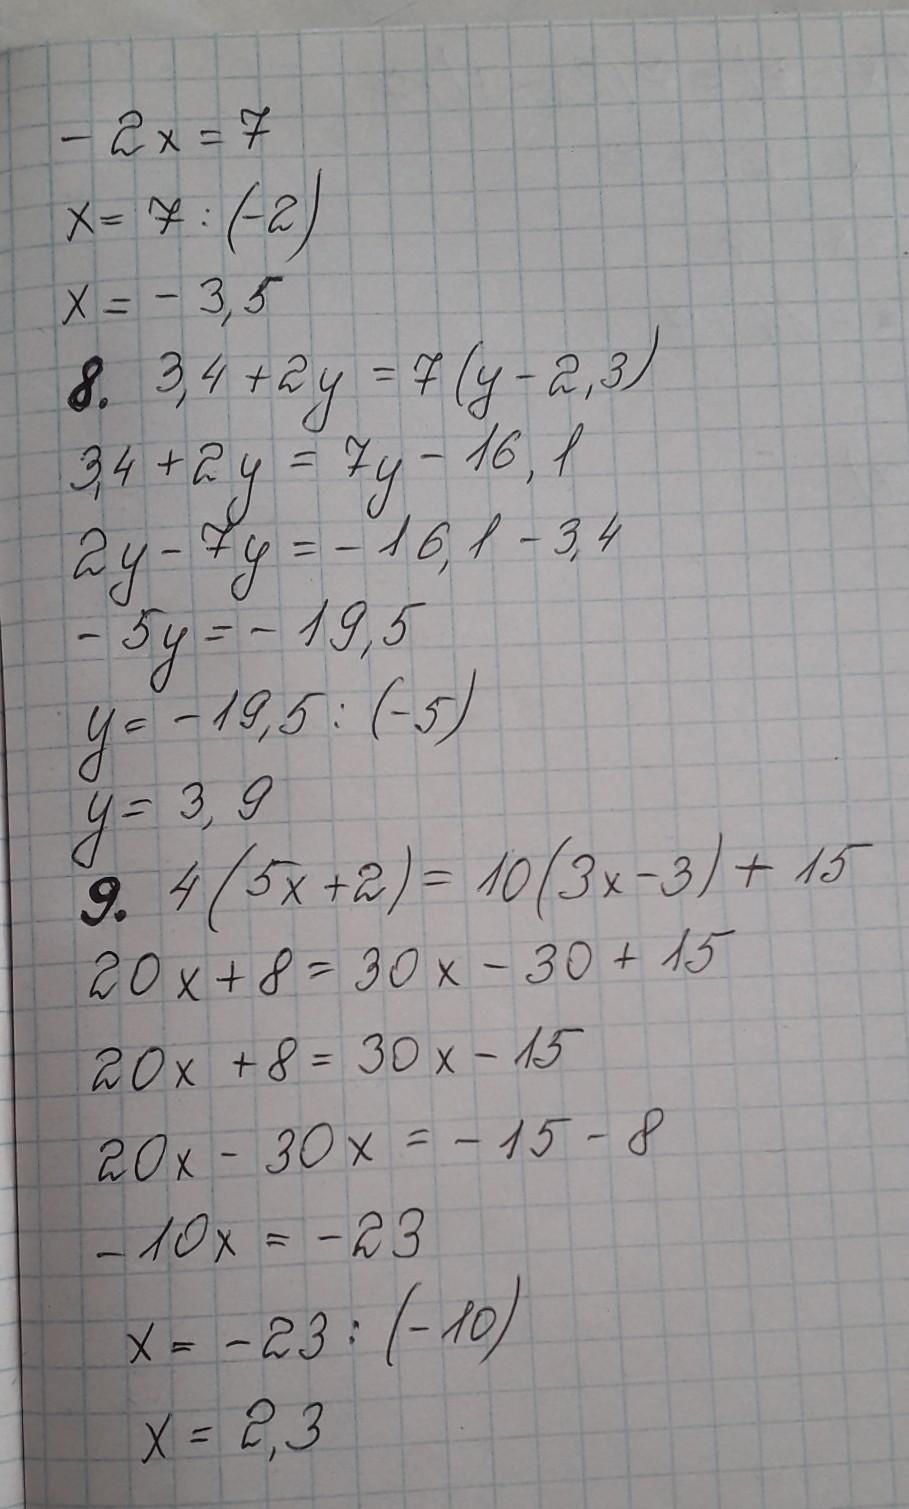 - 2x = 7
x = 7 : (-2)
x = - 3,5
8. 3,4 + 2y = 7(y - 2,3)
3,4 + 2y = 7y - 16,1
2y - 7y = - 16,1 - 3,4
- 5y = - 19,5
y = - 19,5 : (-5)
y = 3,9
9. 4(5x + 2) = 10(3x - 3) + 15
20x + 8 = 30x - 30 + 15
20x + 8 = 30x - 15
20x - 30x = - 15 - 8
- 10x = - 23
x = - 23 : (- 10)
x = 2,3